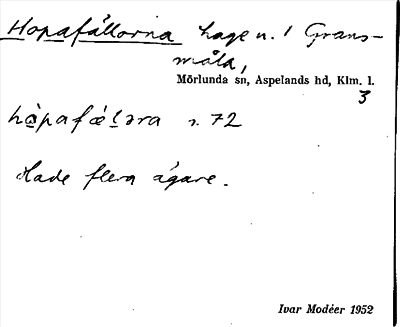 Hopafällorna hage n. 1 Grans-
måla,
Mörlunda sn, Aspelands hd, Klm. l.
3
hò̱pafæ̀ḻəra s. 72
Hade flera ägare.
Ivar Modéer 1952